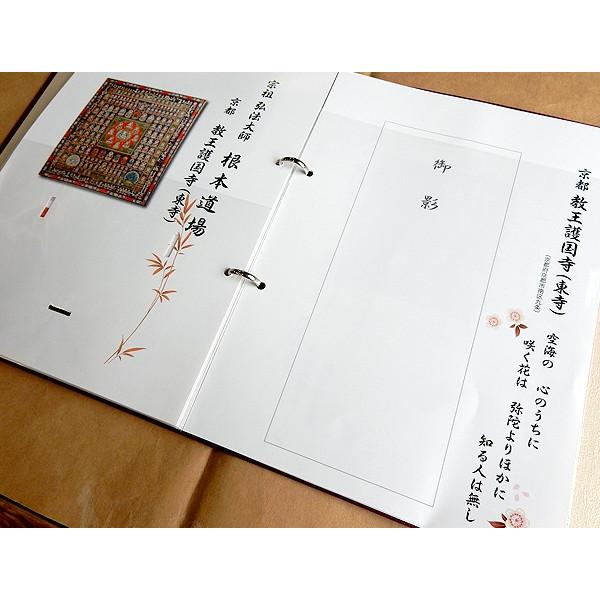 京都 教王護国寺(東寺)
(京都府京都市南区九条)
空海の 心のうちに
咲く花は 弥陀よりほかに
知る人は無し
御影
宗祖 弘法大師
根本道場
京都 教王護国寺(東寺)